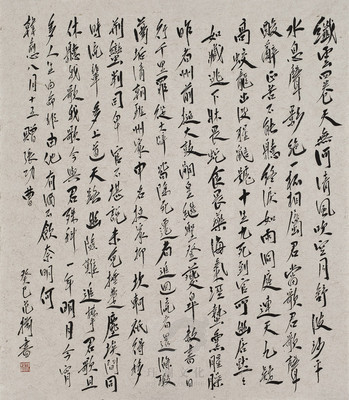 纖雲四卷天無河清風吹空月舒波沙平
水息聲影絕一杯相屬君當歌君歌聲
酸辭正苦不能聽終淚如雨洞庭連天九疑
高蛟龍出沒猩鼯號十生九死到官所幽居默默
如藏逃下牀畏蛇食畏藥海氣濕蟄熏腥臊
昨者州前搥大鼓嗣皇繼聖登夔皋赦書一日
行千里罪從大辟皆除死遷者追回流者還滌瑕
蕩垢清朝班州家申名使家抑坎軻祗得移
荊蠻判司卑官不堪說未免捶楚塵埃間同
時流輩多上道天路幽險難追攀君歌且
休聽我歌我歌今與君殊科一年明月今宵
多人生由命非由他有酒不飲奈明何
韓愈八月十五贈張功曹
癸巳書